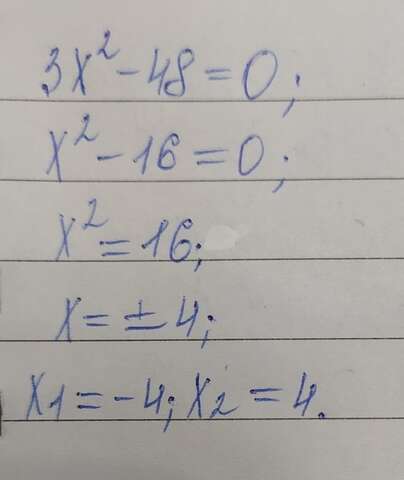 3x² - 48 = 0;
x² - 16 = 0;
x² = 16;
x = ± 4;
x1 = -4; x2 = 4.